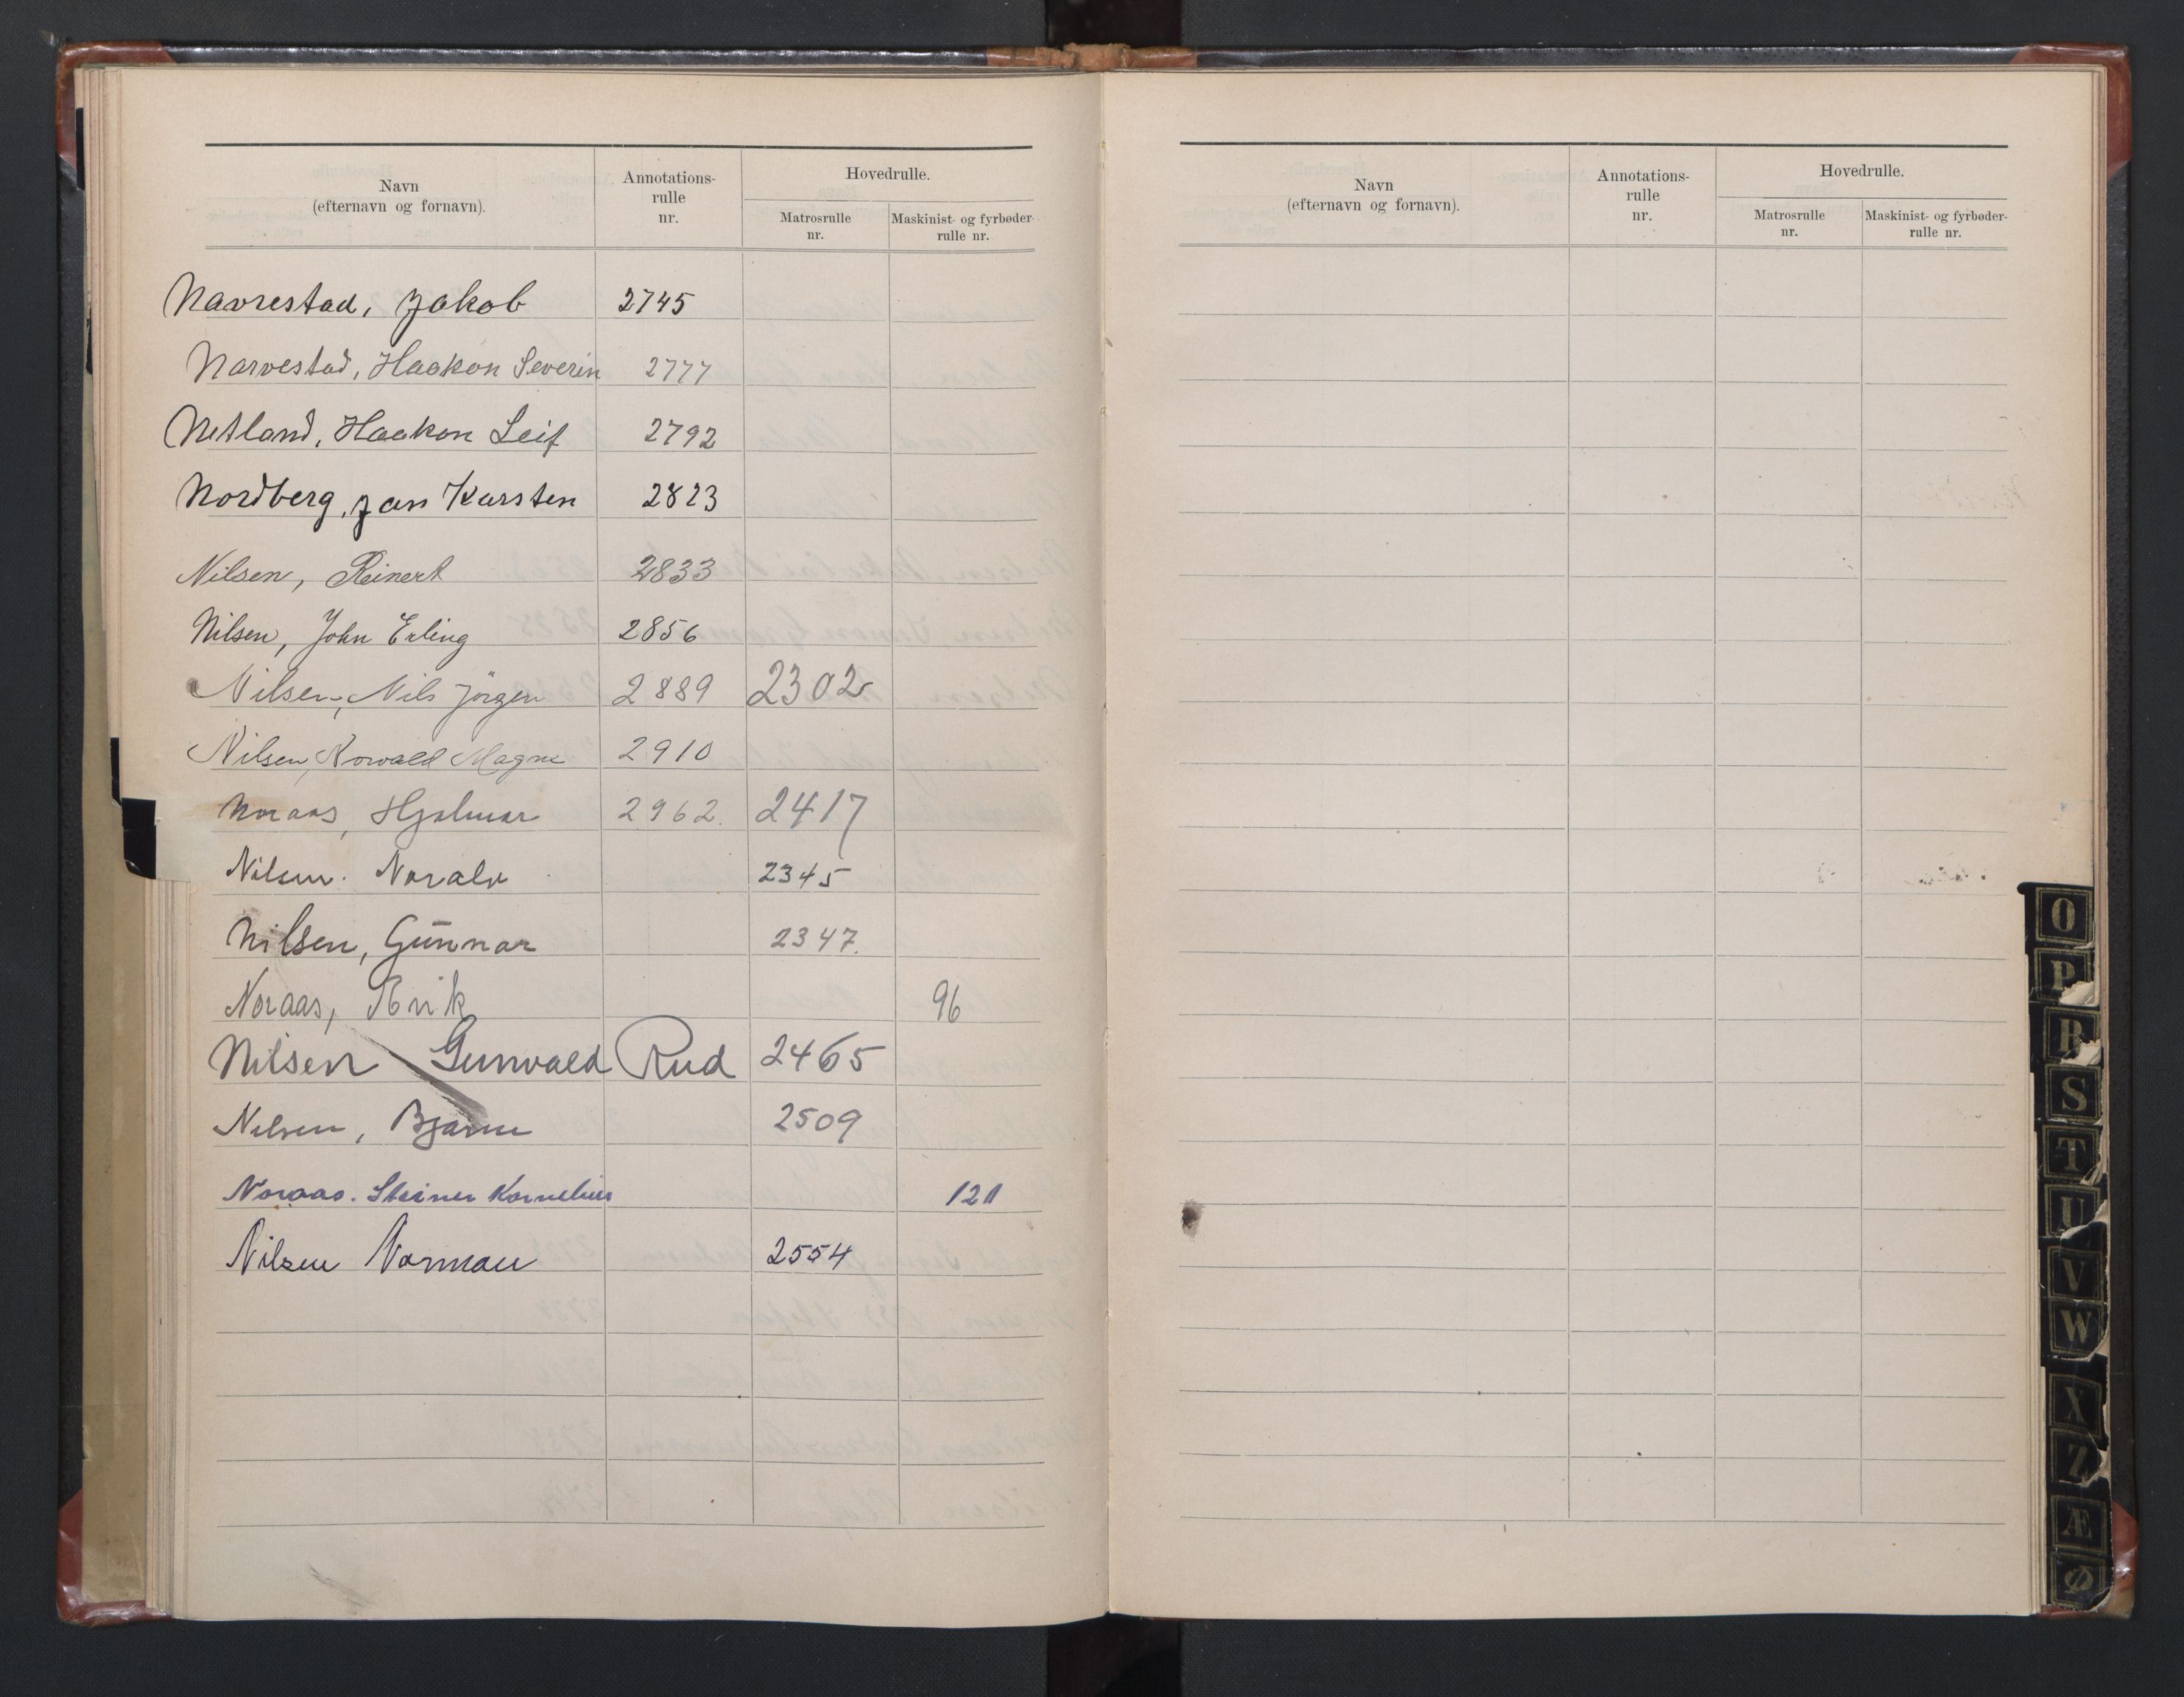 Navn
(efternavn og fornavn).
Annotations-
rulle
nr.
Hovedrulle.
Matrosrulle
nr.
Maskinist- og fyrbøder-
rulle nr.
Navrestad, Jakob 2745
Narvestad, Haakon Severin 2777
Netland, Haakon Leif 2792
Nordberg, Jan Karsten 2823
Nilsen, Reinert 2833
Nilsen, John Erling 2856
Nilsen, Nils Jörgen 2889 2302
Nilsen, Norvald Magne 2910
Noraas, Hjalmar 2962. 2417
Nilsen. Noralv 2345
Nilsen, Gunnar 2347.
Noraas, 96
Nilsen Gunvald Rud 2465
Nilsen, Bjarne 2509
Noraas. Steinar Kornelius 121
Nilsen Norman 2554
Navn
(efternavn og fornavn).
Annotations-
rulle
nr.
Hovedrulle.
Matrosrulle
nr.
Maskinist- og fyrbøder-
rulle nr.
O
P
R
S
T
U
V
W
X
Z
Æ
Ø